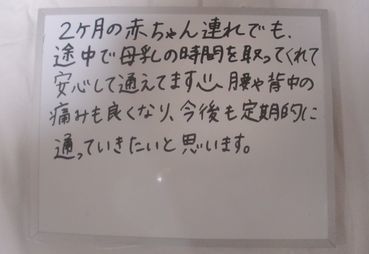 2ヶ月の赤ちゃん連れでも、
途中で母乳の時間を取ってくれて
安心して通えてます。腰や背中の
痛みも良くなり、今後も定期的に
通っていきたいと思います。